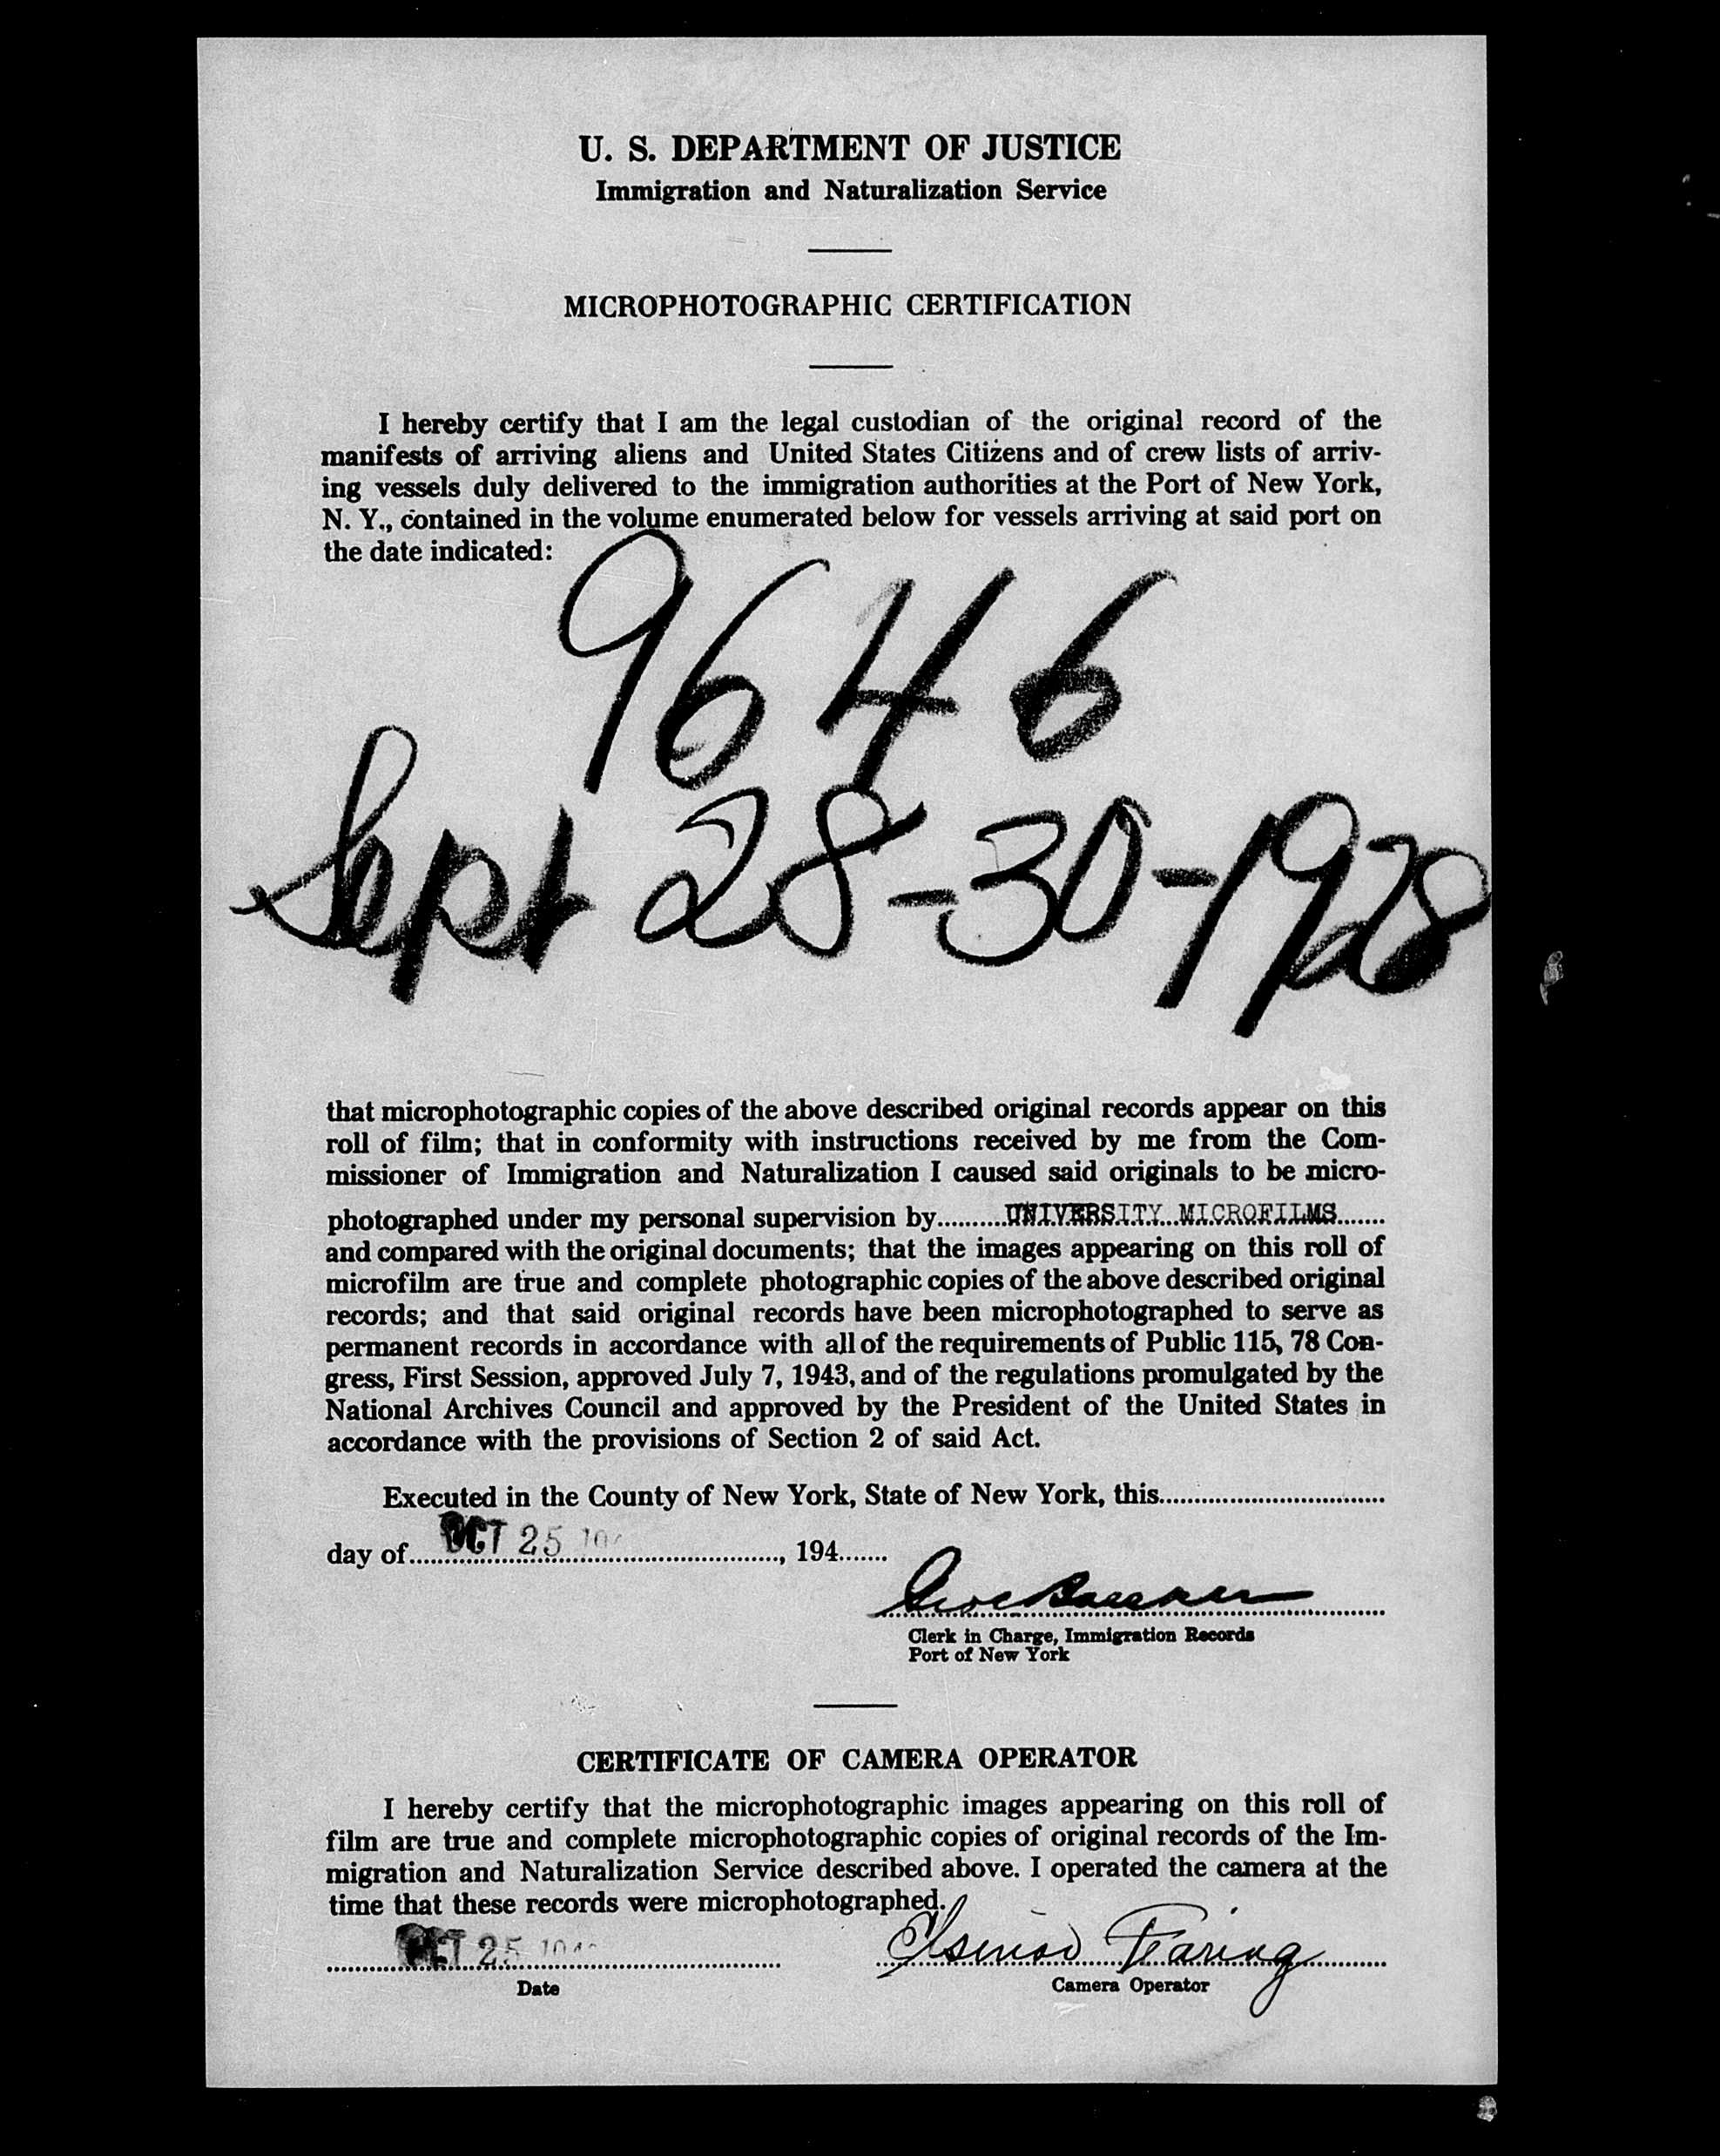 U. S. DEPARTMENT OF JUSTICE
Immigration and Naturalization Service
MICROPHOTOGRAPHIC CERTIFICATION
I hereby certify that I am the legal custodian of the original record of the
manifests of arriving aliens and United States Citizens and of crew lists of arriv-
ing vessels duly delivered to the immigration authorities at the Port of New York,
N. Y., contained in the volume enumerated below for vessels arriving at said port on
the date indicated:
9646
Sept 28-30-1928
that microphotographic copies of the above described original records appear on this
roll of film; that in conformity with instructions received by me from the Com-
missioner of Immigration and Naturalization I caused said originals to be micro-
photographed under my personal supervision by..........UNIVERSITY MICROFILMS.......
and compared with the original documents; that the images appearing on this roll of
microfilm are true and complete photographic copies of the above described original
records; and that said original records have been microphotographed to serve as
permanent records in accordance with all of the requirements of Public 115, 78 Con-
gress, First Session, approved July 7, 1943, and of the regulations promulgated by the
National Archives Council and approved by the President of the United States in
accordance with the provisions of Section 2 of said Act.
Executed in the County of New York, State of New York, this................................
day of OCT 25, 194.......
Clerk in Charge, Immigration Records
Port of New York
CERTIFICATE OF CAMERA OPERATOR
I hereby certify that the microphotographic images appearing on this roll of
film are true and complete microphotographic copies of original records of the Im-
migration and Naturalization Service described above. I operated the camera at the
time that these records were microphotographed.
OCT 25
Date
Camera Operator